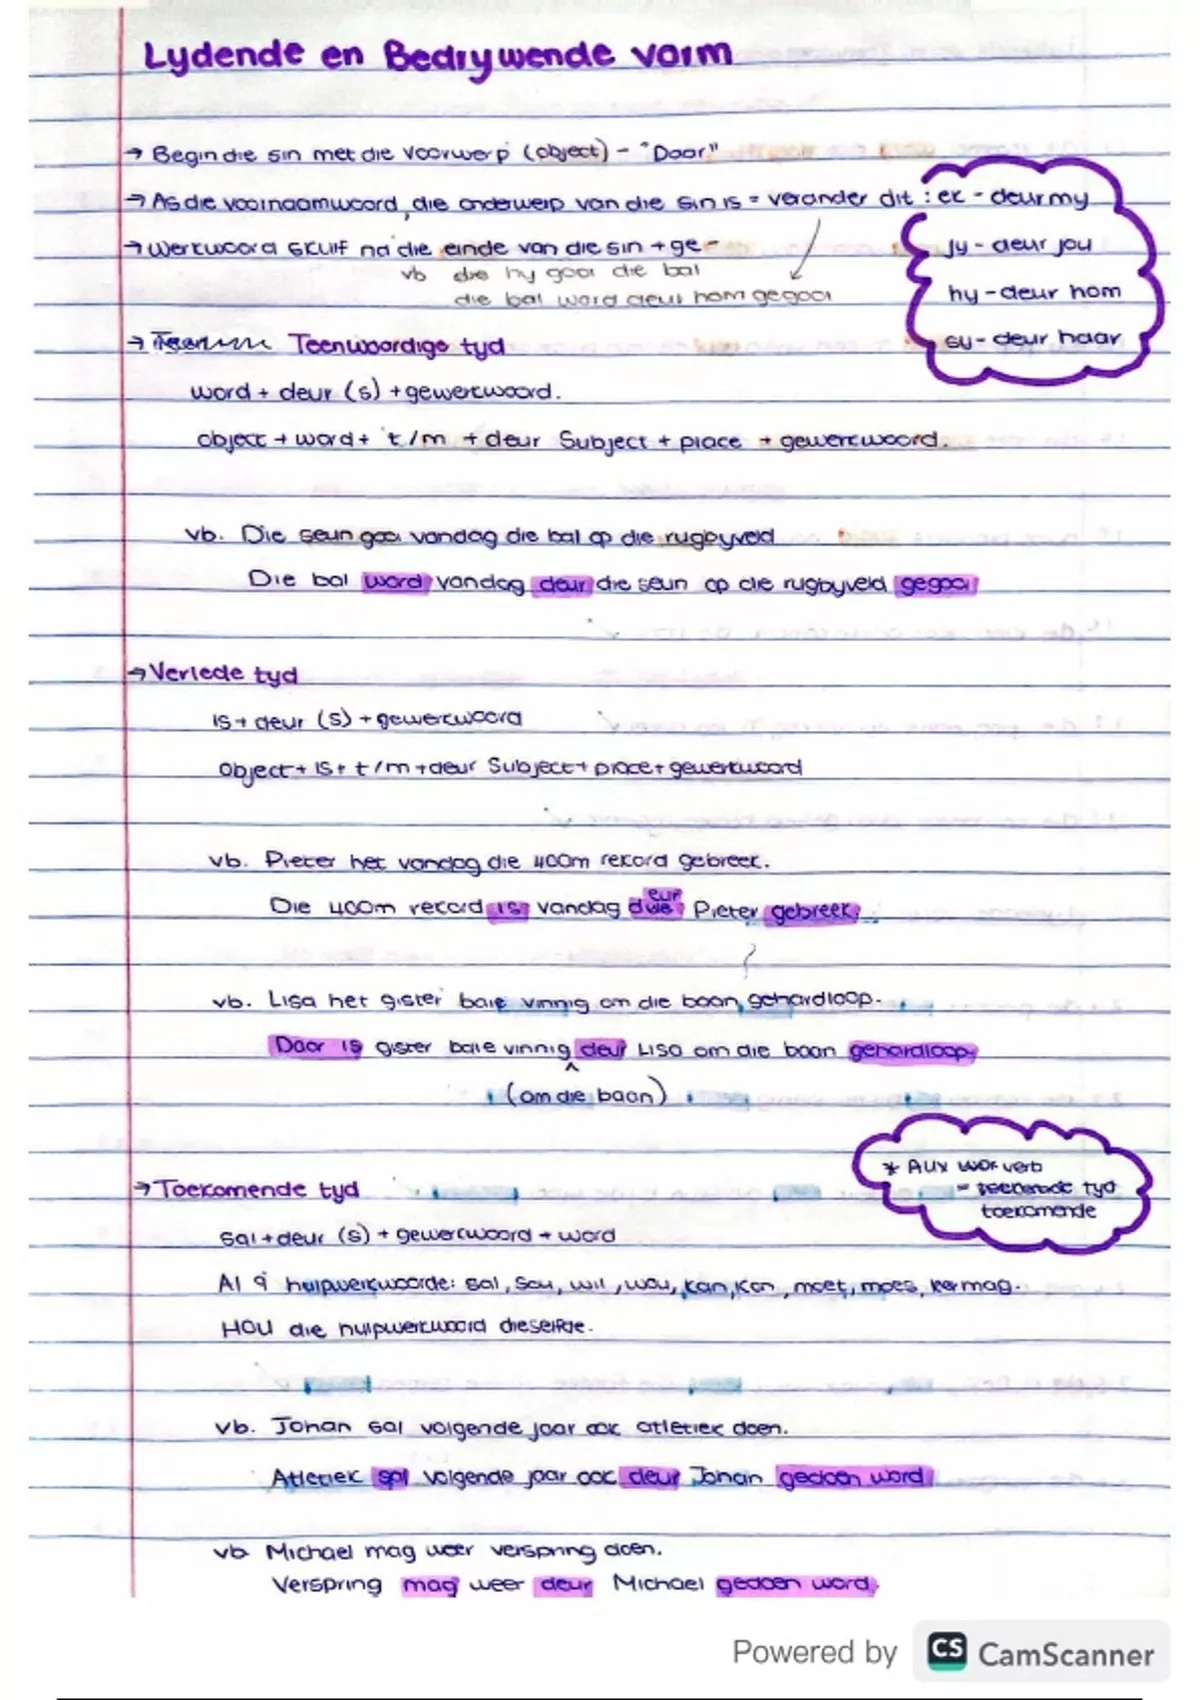 Lydende en Bedrywende vorm
→ Begin die sin met die voorwerp (object) - "Daar"
→ As die voornaamwoord, die onderwerp van die sin is = verander dit : ek - deur my
jy - deur jou
hy - deur hom
sy - deur haar
→ Werkwoord skuif na die einde van die sin + ge-
vb die hy gooi die bal
die bal word deur hom gegooi
→ Teenwoordige tyd
word + deur (s) + gewerkwoord.
object + word + t/m + deur Subject + place + gewerkwoord.
vb. Die seun gooi vandag die bal op die rugbyveld
Die bal word vandag deur die seun op die rugbyveld gegooi
→ Verlede tyd
is + deur (s) + gewerkwoord
Object + is + t/m + deur Subject + place + gewerkwoord
vb. Pieter het vandag die 400m rekord gebreek.
Die 400m record is vandag deur Pieter gebreek.
vb. Lisa het gister baie vinnig om die baan gehardloop.
Daar is gister baie vinnig ^ deur Lisa om die baan gehardloop
(om die baan)
→ Toekomende tyd
* Aux verb
= tyd
toekomende
sal + deur (s) + gewerkwoord + word
Al 9 hulpwerkwoorde: sal, sou, wil, wou, kan, kon, moet, moes, mag.
HOU die hulpwerkwoord dieselfde.
vb. Johan sal volgende jaar ook atletiek doen.
Atletiek sal volgende jaar ook deur Johan gedoen word
vb Michael mag weer verspring doen.
Verspring mag weer deur Michael gedoen word.
Powered by CS CamScanner